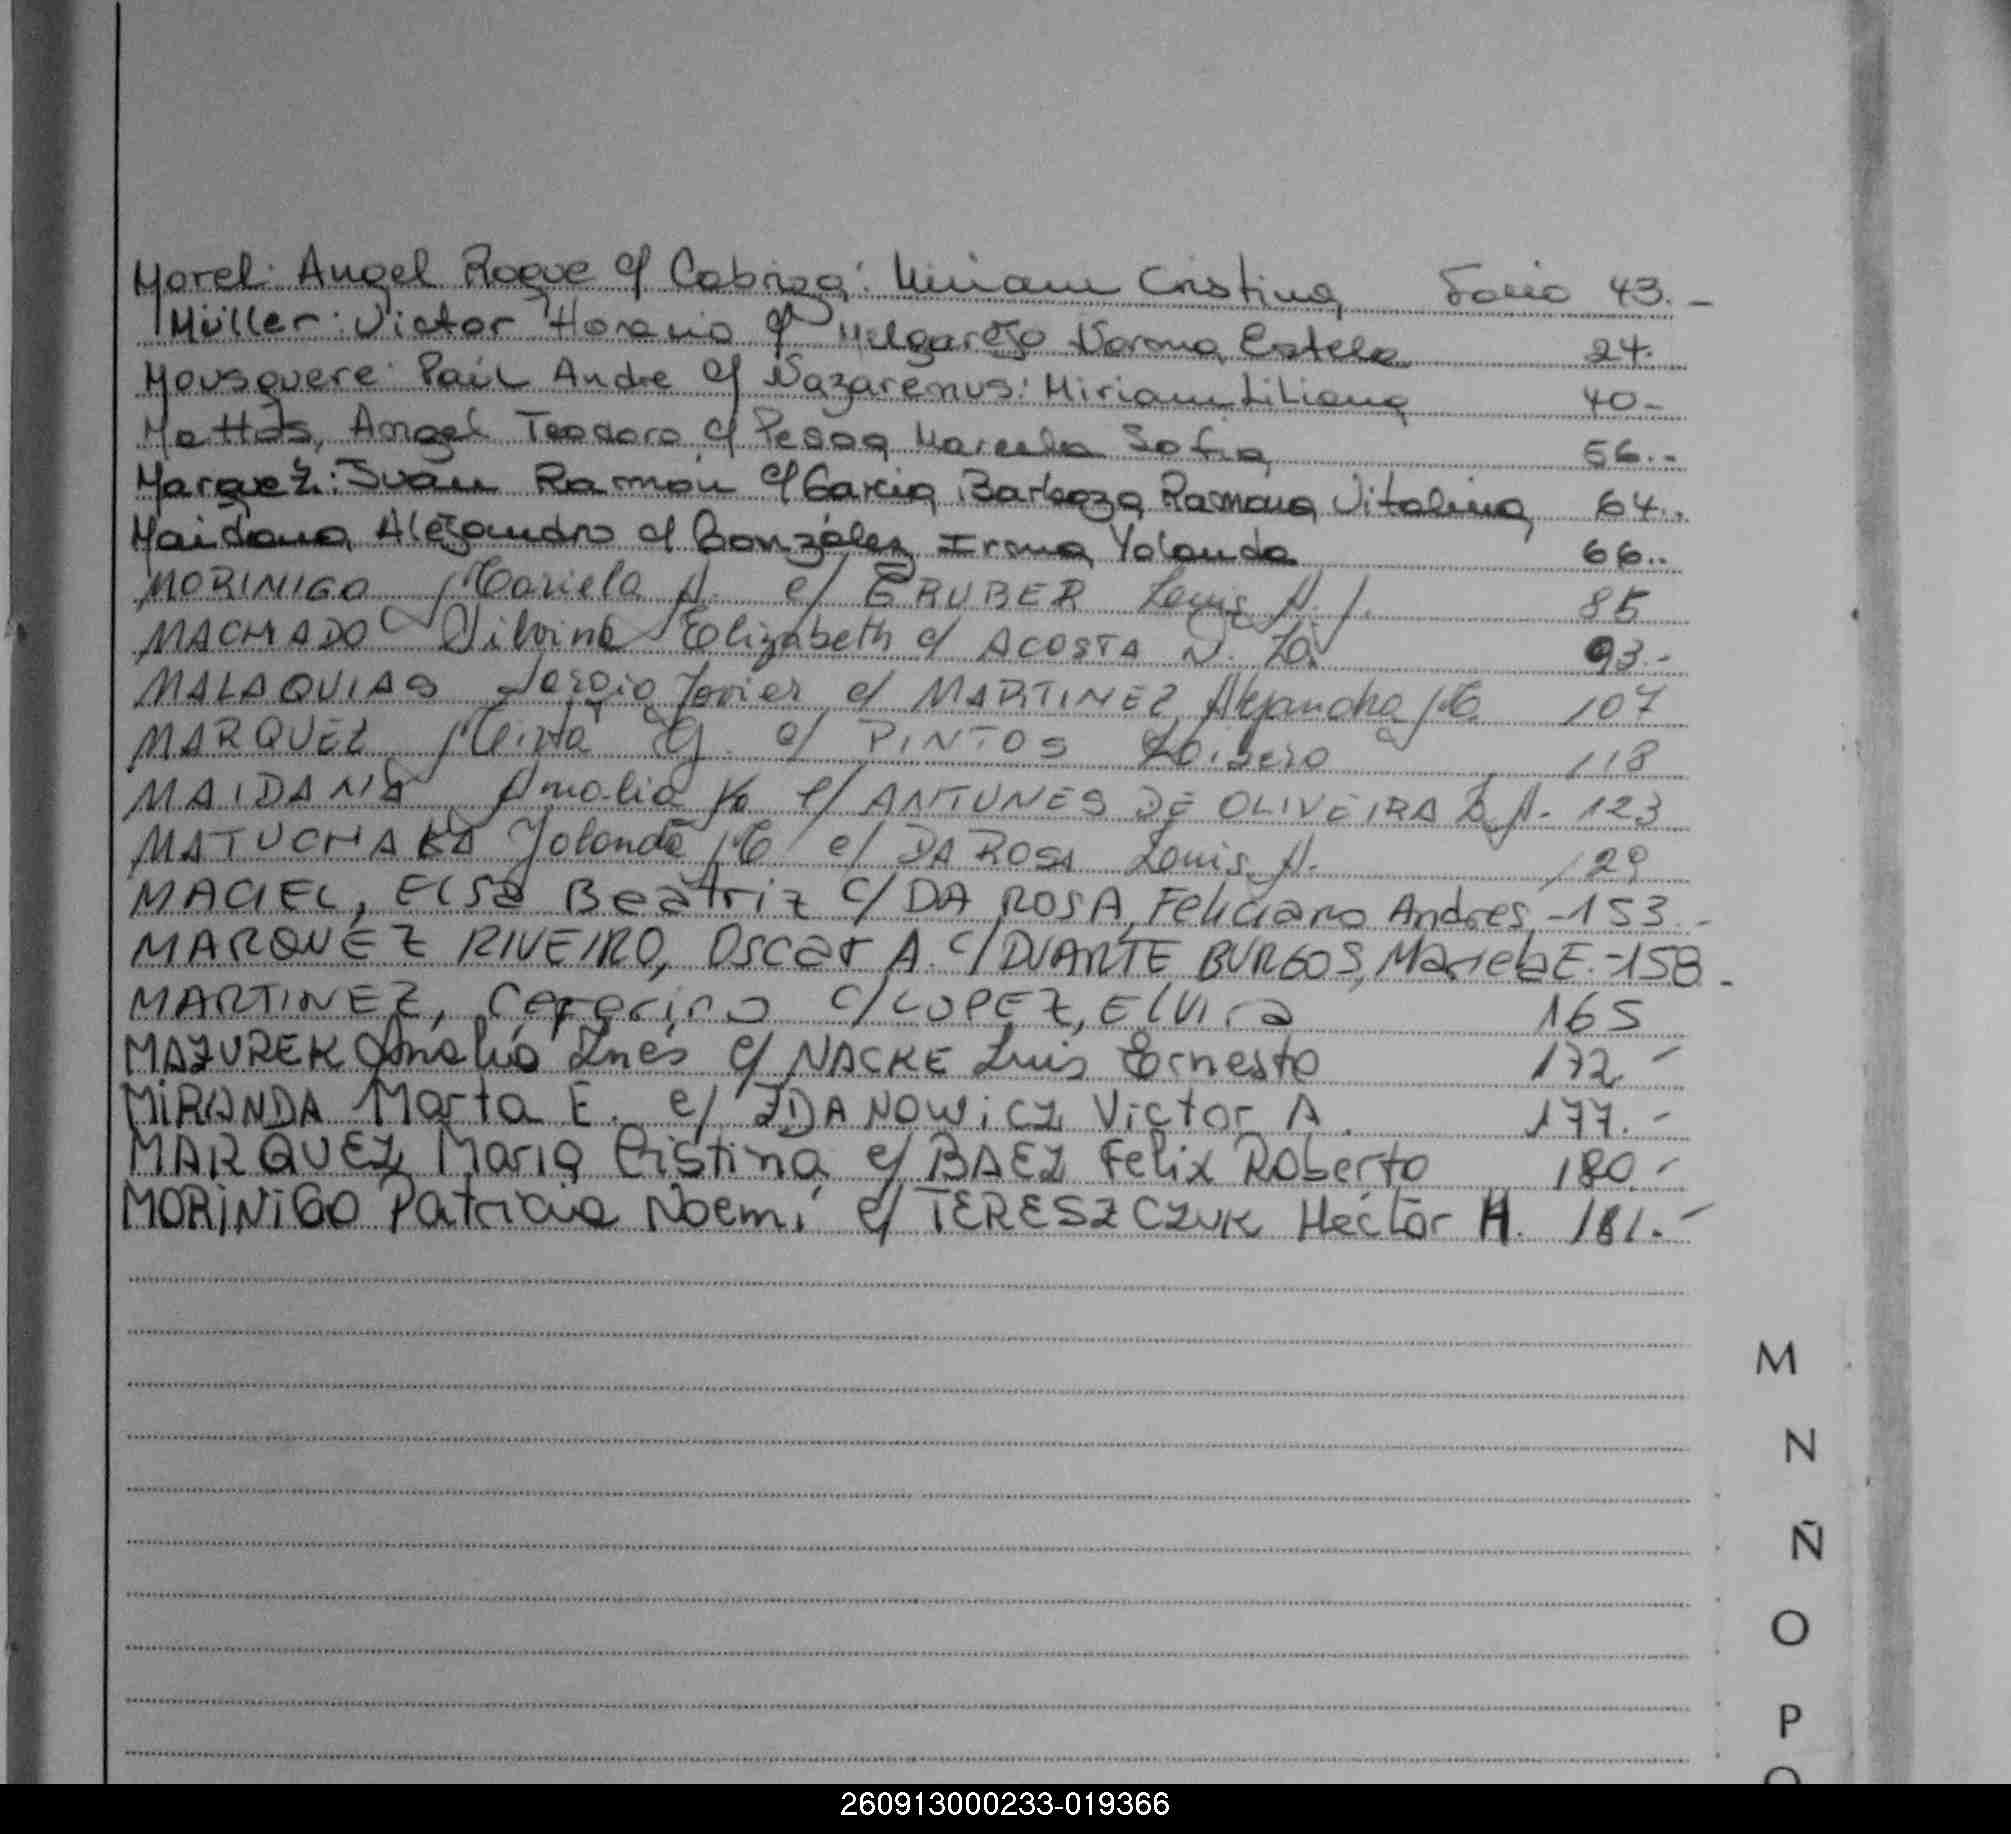 Morel: Angel Roque c/ Cabriza: Miriam Cristina Folio 43.-
Müller: Victor Horacio c/ Melgarejo Norma Estela 24.
Mousquere: Paúl Andre c/ Nazarenus: Miriam Liliana 40-
Mattos, Angel Teodoro c/ Pesoa Marcela Sofia 56..-
Marquez: Juan Ramón c/ Garcia Barboza Ramona Vitalina 64..
Maidana Alejandro c/ González Irma Yolanda 66..
MORINIGO Mariela A. c/ GRUBER Louis A. J. 85
MACHADO Silvina Elizabeth c/ ACOSTA N. 93.-
MALAQUIAS Sergio Javier c/ MARTINEZ Alejandra M. 107
MARQUEZ Mirta G. c/ PINTOS 118
MAIDANA Amalia c/ ANTUNES DE OLIVEIRA A. 123
MATUCHAKA Yolanda M c/ DA ROSA Louis A. 129
MACIEL, Elsa Beatriz c/ DA ROSA, Feliciano Andres -153.-
MARQUEZ RIVEIRO, Oscar A. c/ DUARTE BURGOS, Mariela E. -158.-
MARTINEZ, Ceferino c/ LOPEZ, Elvira 165
MAZUREK Amalia Ines c/ NACKE Luis Ernesto 172.-
MIRANDA Marta E. c/ ZDANOWICZ Victor A. 177.-
MARQUEZ Maria Cristina c/ BAEZ Felix Roberto 180.-
MORINIGO Patricia Noemí c/ TERESZCZUK Hector H. 181.-
M
N
Ñ
O
P
260913000233-019366